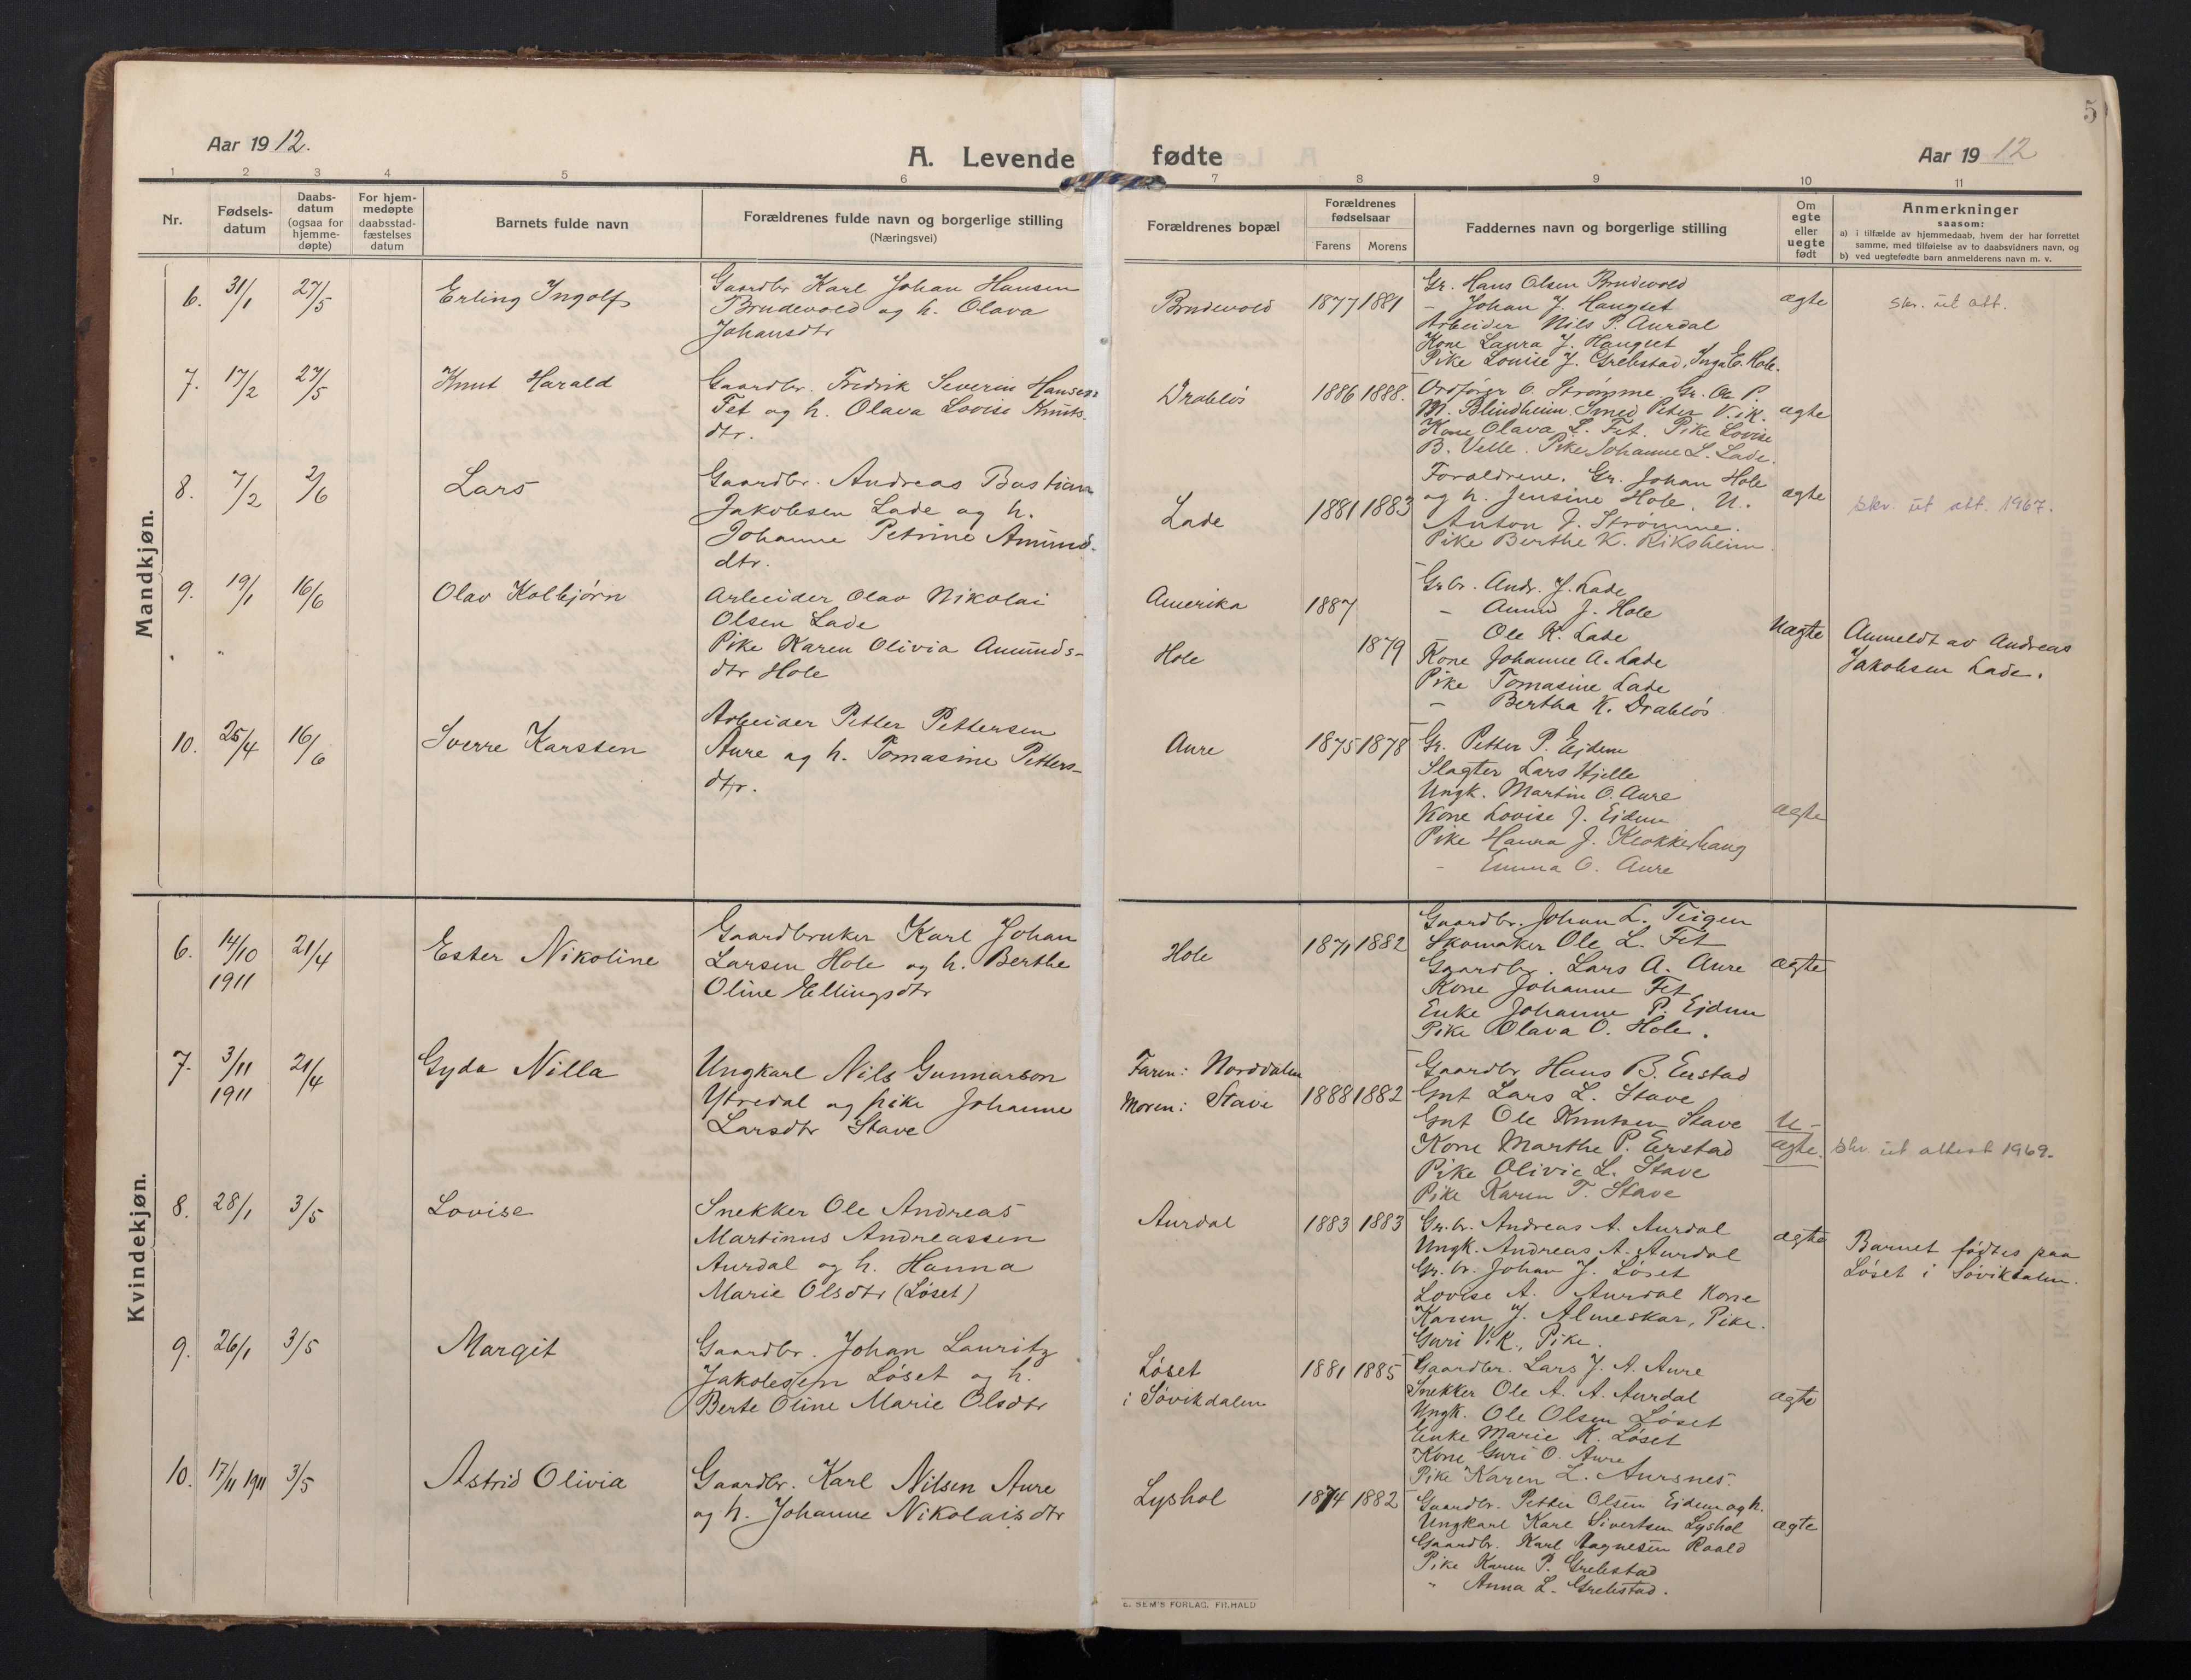 5
Aar 1912.
A. Levende fødte
Aar 1912
1 2 3 4 5 6 7 8 9 10 11
Nr.
Fødsels-
datum
Daabs-
datum
(ogsaa for
hjemme-
døpte)
For hjem-
medøpte
daabsstad-
fæstelses
datum
Barnets fulde navn
Forældrenes fulde navn og borgerlige stilling
(Næringsvei)
Forældrenes bopæl
Forældrenes
fødselsaar
Farens Morens
Faddernes navn og borgerlige stilling
Om
egte
eller
uegte
født
Anmerkninger
saasom:
a) i tilfælde av hjemmedaab, hvem der har forrettet
samme, med tilføielse av to daabsvidners navn, og
b) ved uegtefødte barn anmelderens navn m. v.
Mandkjøn.
6. 31/1 27/5 Erling Ingolf
Gaardbr Karl Johan Hansen
Brudevold og h. Olava
Johansdtr
Brudevold 1877 1881
Gr. Hans Olsen Brudevold
- Johan J. Haugset
Arbeider Nils P. Aurdal
Kone Laura J. Haugset
Pike Louise J. Grebstad, Inga E. Hole.
ægte
skr. ut att.
7. 17/2 27/5 Knut Harald
Gaardbr. Fredrik Severin Hansen
Fet og h. Olava Lovise Knuts-
dtr.
Drabløs 1886 1888.
Ordfører O. Strømme. Gr. Ole P.
M. Blindheim. Smed Peter Vik.
Kone Olava L. Fet. Pike Lovise
B. Velle. Pike Johanne L. Lade.
ægte
8. 7/2 2/6 Lars
Gaardbr. Andreas Bastian
Jakobsen Lade og h.
Johanne Petrine Amunds-
dtr.
Lade 1881 1883
Forældrene. Gr. Johan Hole
og h. Jensine Hole. U.
Anton J. Strømme.
Pike Berthe K. Riksheim.
ægte
skr. ut att. 1967.
9. 19/1 16/6 Olav Kolbjørn
Arbeider Olav Nikolai
Olsen Lade
Pike Karen Olivia Amunds-
dtr Hole
Amerika 1887
Hole 1879
Grbr. Andr. J. Lade
- Amund J. Hole
Ole K. Lade
Kone Johanne A. Lade
Pike Tomasine Lade
- Bertha K. Drabløs.
Uægte
Anmeldt av Andreas
Jakobsen Lade.
10. 25/4 16/6 Sverre Karsten
Arbeider Petter Pettersen
Aure og h. Tomasine Petters-
dtr.
Aure 1875 1878
Gr. Petter P. Ejdem
Slagter Lars Hjelle
Ungk. Martin O. Aure
Kone Lovise J. Eidem
Pike Hanna J. Klokkerhaug
- Emma O. Aure
ægte
Kvindekjøn.
6. 14/10 1911 21/4 Ester Nikoline
Gaardbruker Karl Johan
Larsen Hole og h. Berthe
Oline Ellingsdtr
Hole 1871 1882
Gaardbr. Johan L. Teigen
Skomaker Ole L. Fet
Gaardbr. Lars A. Aure
Kone Johanne Fet
Enke Johanne P. Ejdem
Pike Olava O. Hole.
ægte
7. 3/11 1911 21/4 Gyda Nilla
Ungkarl Nils Gunnarson
Ytredal og pike Johanne
Larsdtr Stave
Faren: Norddalen
Moren: Stave 1888 1882
Gaardbr Hans B. Erstad
Gmt Lars L. Stave
Gmt Ole Knutsen Stave
Kone Marthe P. Erstad
Pike Olivie L. Stave
Pike Karen T. Stave
U-
ægte.
skr. ut attest 1969.
8. 28/1 3/5 Lovise
Snekker Ole Andreas
Martinus Andreassen
Aurdal og h. Hanna
Marie Olsdtr (Løset)
Aurdal 1883 1883
Gr.br. Andreas A. Aurdal
Ungk. Andreas A. Aurdal
Gr. br. Johan J. Løset
Lovise A. Aurdal Kone
Karen J. Almeskar, Pike.
Guri Vik, Pike.
ægte
Barnet fødtes paa
Løset i Søvikdalen.
9. 26/1 3/5 Margit
Gaardbr. Johan Lauritz
Jakobsen Løset og h.
Berte Oline Marie Olsdtr
Løset
i Søvikdalen 1881 1885
Gaardbr. Lars J. A. Aure
Snekker Ole A. A. Aurdal
Ungk. Ole Olsen Løset
Enke Marie K. Løset
Kone Guri O. Aure
Pike Karen L. Aursnes.
ægte
10. 17/11 1911 3/5 Astrid Olivia
Gaardbr. Karl Nilsen Aure
og h. Johanne Nikolaisdtr
Lyshol 1874 1882
Gaardbr. Petter Olsen Eidem og h.
Ungkarl Karl Sivertsen Lyshol
Gaardbr. Karl Magnesen Roald
Pike Karen P. Grebstad
" Anna L. Grebstad.
ægte
E. SEM'S FORLAG. FR.HALD